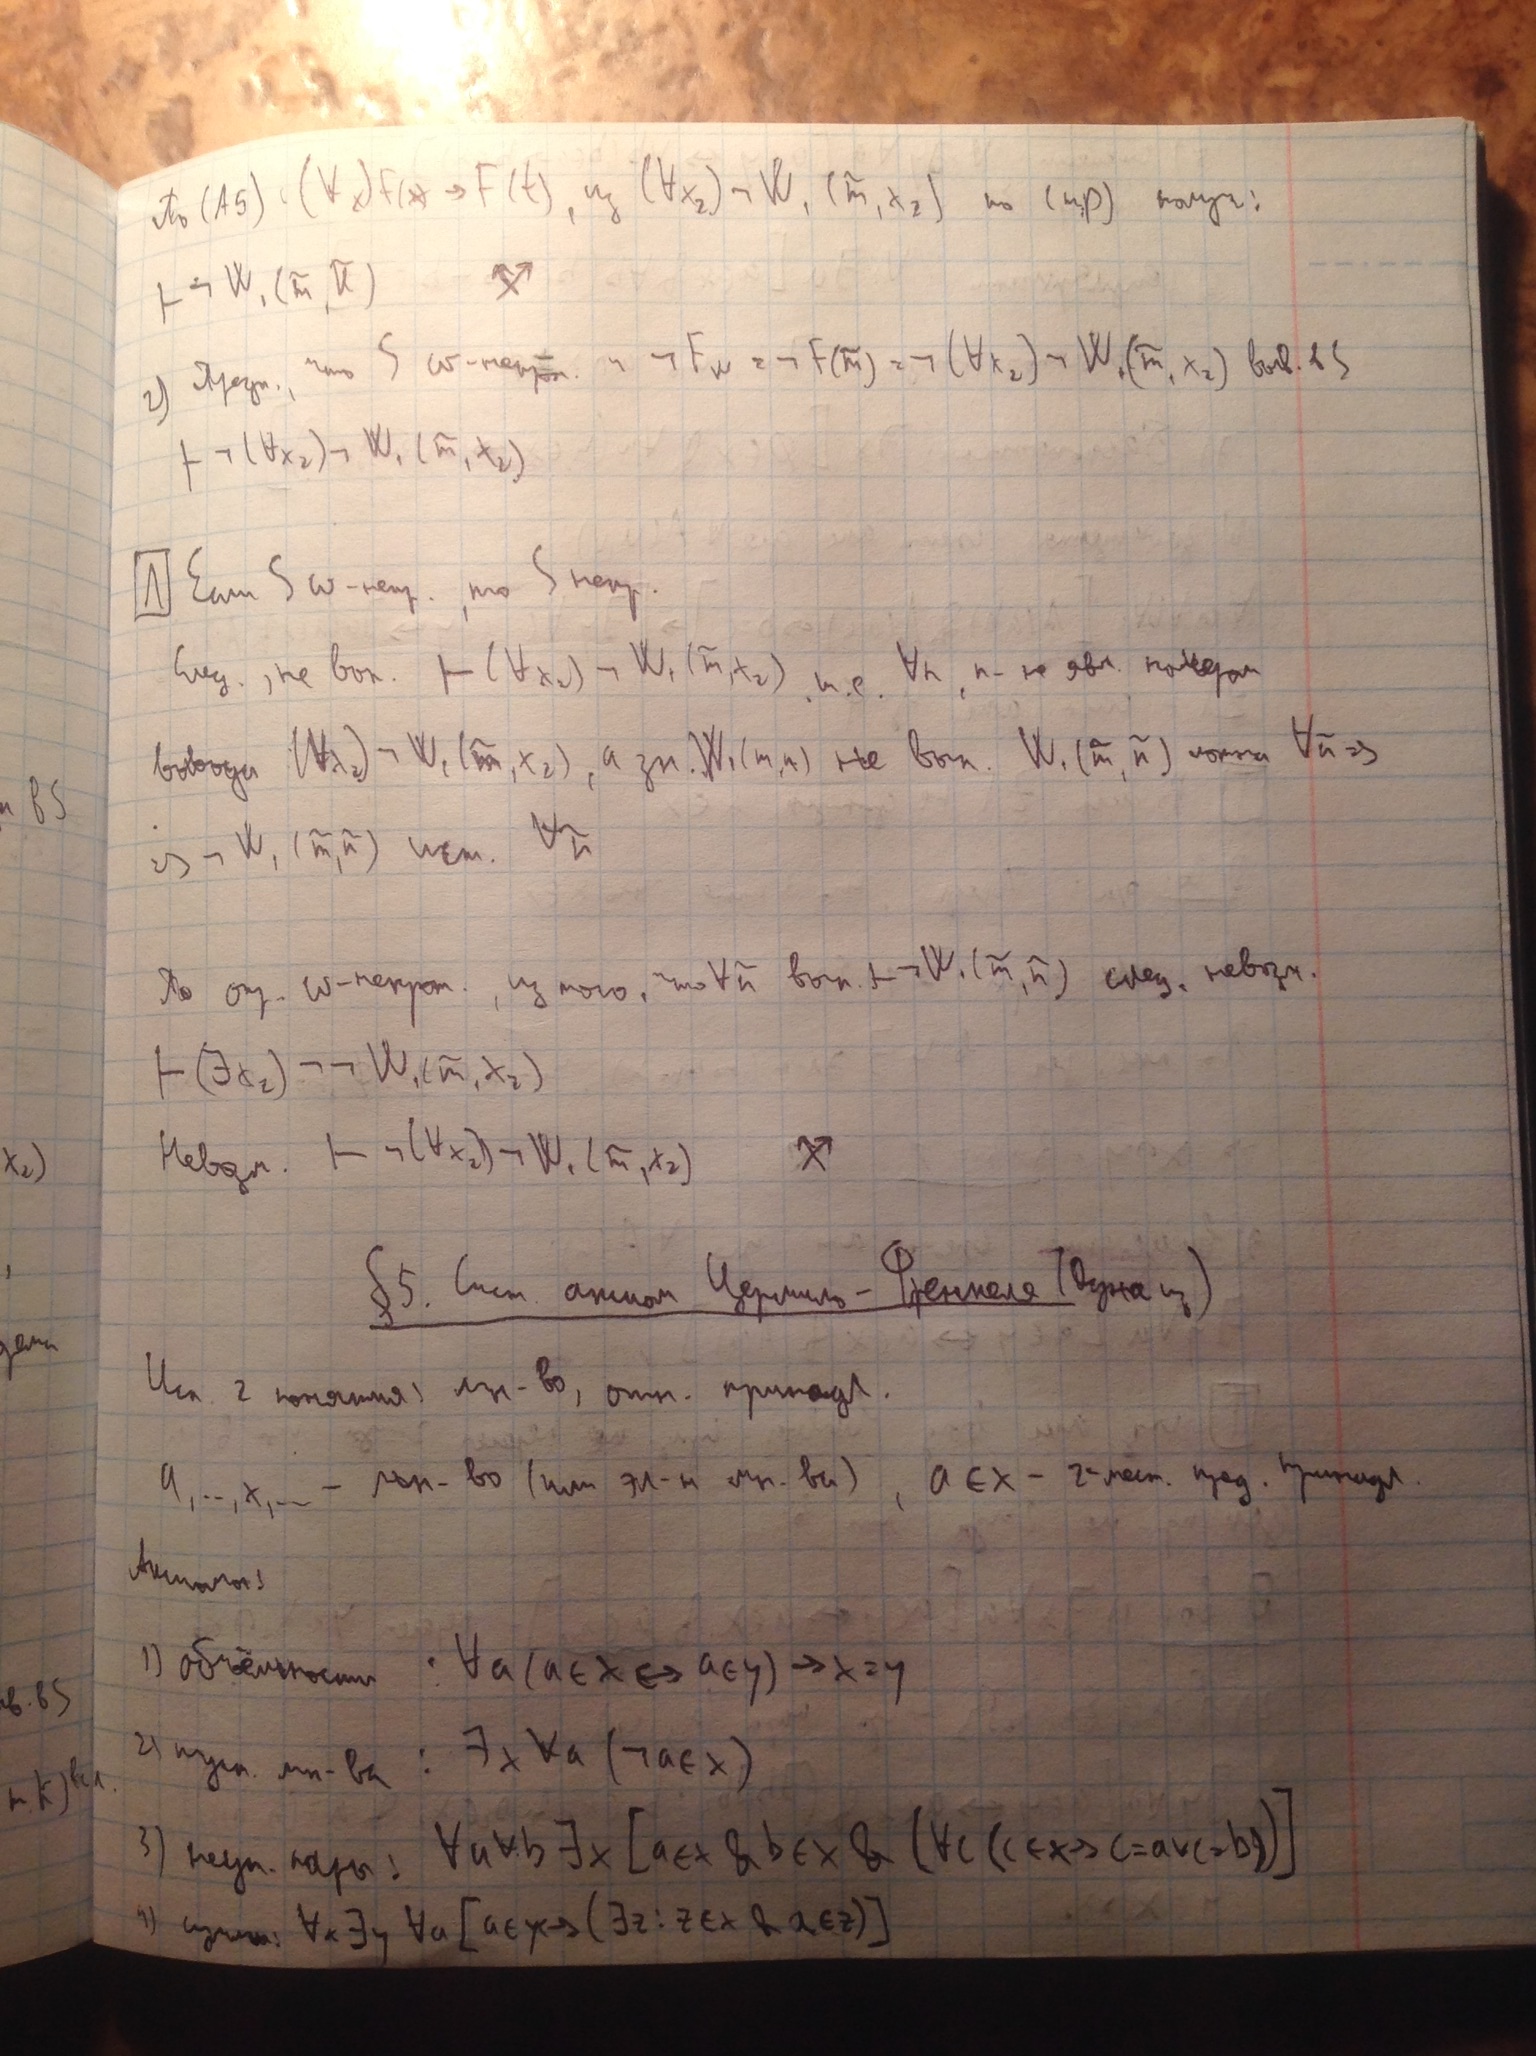 По (A5): (∀x)F(x) → F(t), из (∀x₂)¬W₁(m̃, x₂) по (MP) получ:
⊢ ¬W₁(m̃, k̃)
2) Предп., что S ω-непрот. и ¬F_W = ¬F(m̃) = ¬(∀x₂)¬W₁(m̃, x₂) выв. в S
⊢ ¬(∀x₂)¬W₁(m̃, x₂)
Л Если S ω-непр., то S непр.
След., не вып. ⊢ (∀x₂)¬W₁(m̃, x₂), т.е. ∀n, n - не явл. номером
вывода (∀x₂)¬W₁(m̃, x₂), а зн. W₁(m,n) не вып. W₁(m̃, ñ) ложна ∀ñ =>
=> ¬W₁(m̃, ñ) ист. ∀ñ
По опр. ω-непрот., из того, что ∀ñ вып. ⊢ ¬W₁(m̃, ñ) след. невозм.
⊢ (∃x₂)¬¬W₁(m̃, x₂)
Невозм. ⊢ ¬(∀x₂)¬W₁(m̃, x₂)
§5. Сист. аксиом Цермело-Френкеля (Одна из)
Исп. 2 понятия: мн-во, отн. принадл.
a,..., x,... - мн-во (или эл-т мн-ва), a∈x - 2-мест. пред. принадл.
Аксиомы:
1) объёмности: ∀a(a∈x ↔ a∈y) → x=y
2) пуст. мн-ва: ∃x∀a(¬a∈x)
3) неуп. пары: ∀a∀b∃x[a∈x & b∈x & (∀c(c∈x → c=a∨c=b))]
4) ∀x∃y∀a[a∈y ↔ (∃z: z∈x & a∈z)]
в S
x₂)